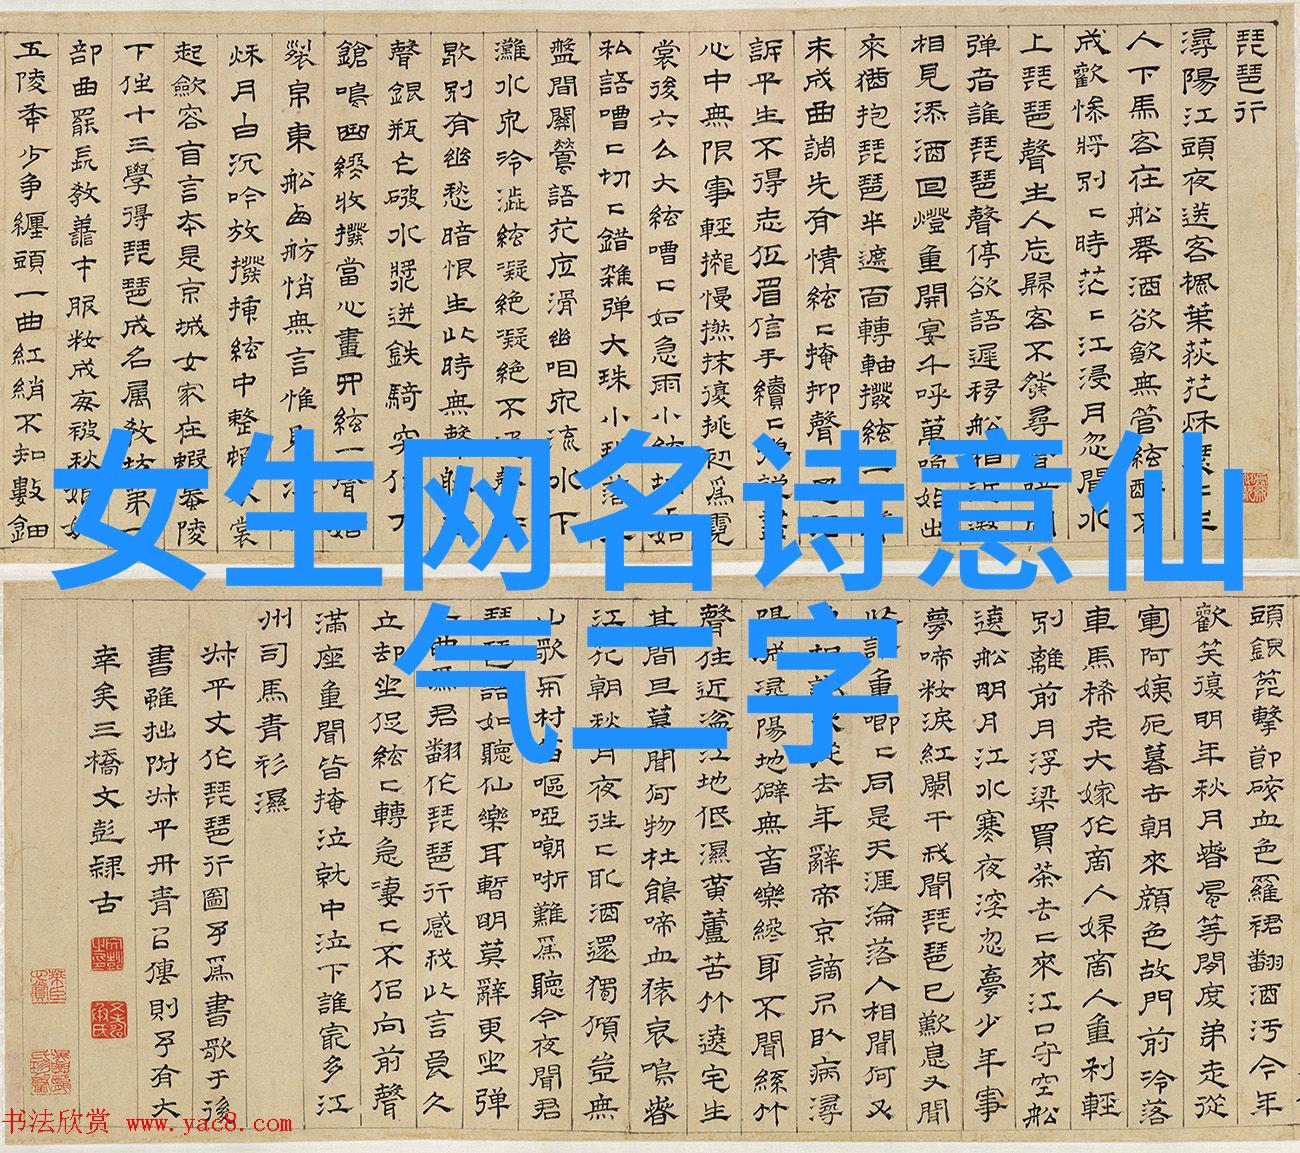 琵琶行
潯陽江頭夜送客楓葉荻花秋瑟〻主
人下馬客在船舉酒欲飲無管絃醉不
成歡慘將別〻時茫〻江浸月忽聞水
上琵琶聲主人忘歸客不發尋
彈者誰琵琶聲停欲語遲移船相近邀
相見添酒回燈重開宴千呼萬喚始出
來猶抱琵琶半遮面轉軸撥絃
未成曲調先有情絃〻掩抑聲
訴平生不得志低眉信手續〻彈說盡
心中無限事輕攏慢撚抹復挑初爲霓
裳後六么大絃嘈〻如急雨小絃切〻如
私語嘈〻切〻錯雜彈大珠小珠落
盤間關鶯語花底滑幽咽泉流水下
灘水泉冷澁絃凝絶凝絶不
歇別有幽愁暗恨生此時無聲
聲銀瓶乍破水漿迸鉄騎突
鎗鳴曲終收撥當心畫四絃一聲如
裂帛東船西舫悄無言惟見
秋月白沉吟放撥揷絃中整頓衣裳
起歛容自言本是京城女家在蝦蟇陵
下住十三學得琵琶成名属教坊第一
部曲罷長教善才服粧成每被秋娘妒
五陵年少争纏頭一曲紅綃不知數鈿
女生网名诗意仙
气二字
頭銀篦擊節破血色羅裙翻酒汚今年
歡笑復明年秋月春風等閒度弟走從
軍阿姨死暮去朝來顔色故門前冷落
車馬稀老大嫁作商人婦商人重利輕
別離前月浮梁買茶去〻來江口守空船
遶船明月江水寒夜深忽夢少年事
夢啼粧淚紅闌干我聞琵琶已歎息又聞
此語重唧〻同是天涯淪落人相聞何必
去年辭帝京謫居臥病潯
陽城潯陽地僻無音樂終歲不聞絲竹
聲住近湓江地低濕黄蘆苦竹遶宅生
其間旦莫聞何物杜鵑啼血猿哀鳴春
江花朝秋月夜往〻取酒還獨傾豈無
山歌與村笛嘔啞嘲哳難爲聽今夜聞君
琵琶語如聽仙樂耳暫明莫辭更坐彈
一曲爲君翻作琵琶行感我此言良久
立却坐促絃〻轉急凄〻不似向前聲
滿座重聞皆掩泣就中泣下誰寃多江
州司馬青衫濕
叔平丈作琵琶行圖予爲書歌于後
書雖拙附叔平丹青以傳則予有大
幸矣三橋文彭隸古
书法欣赏 www.yac8.com